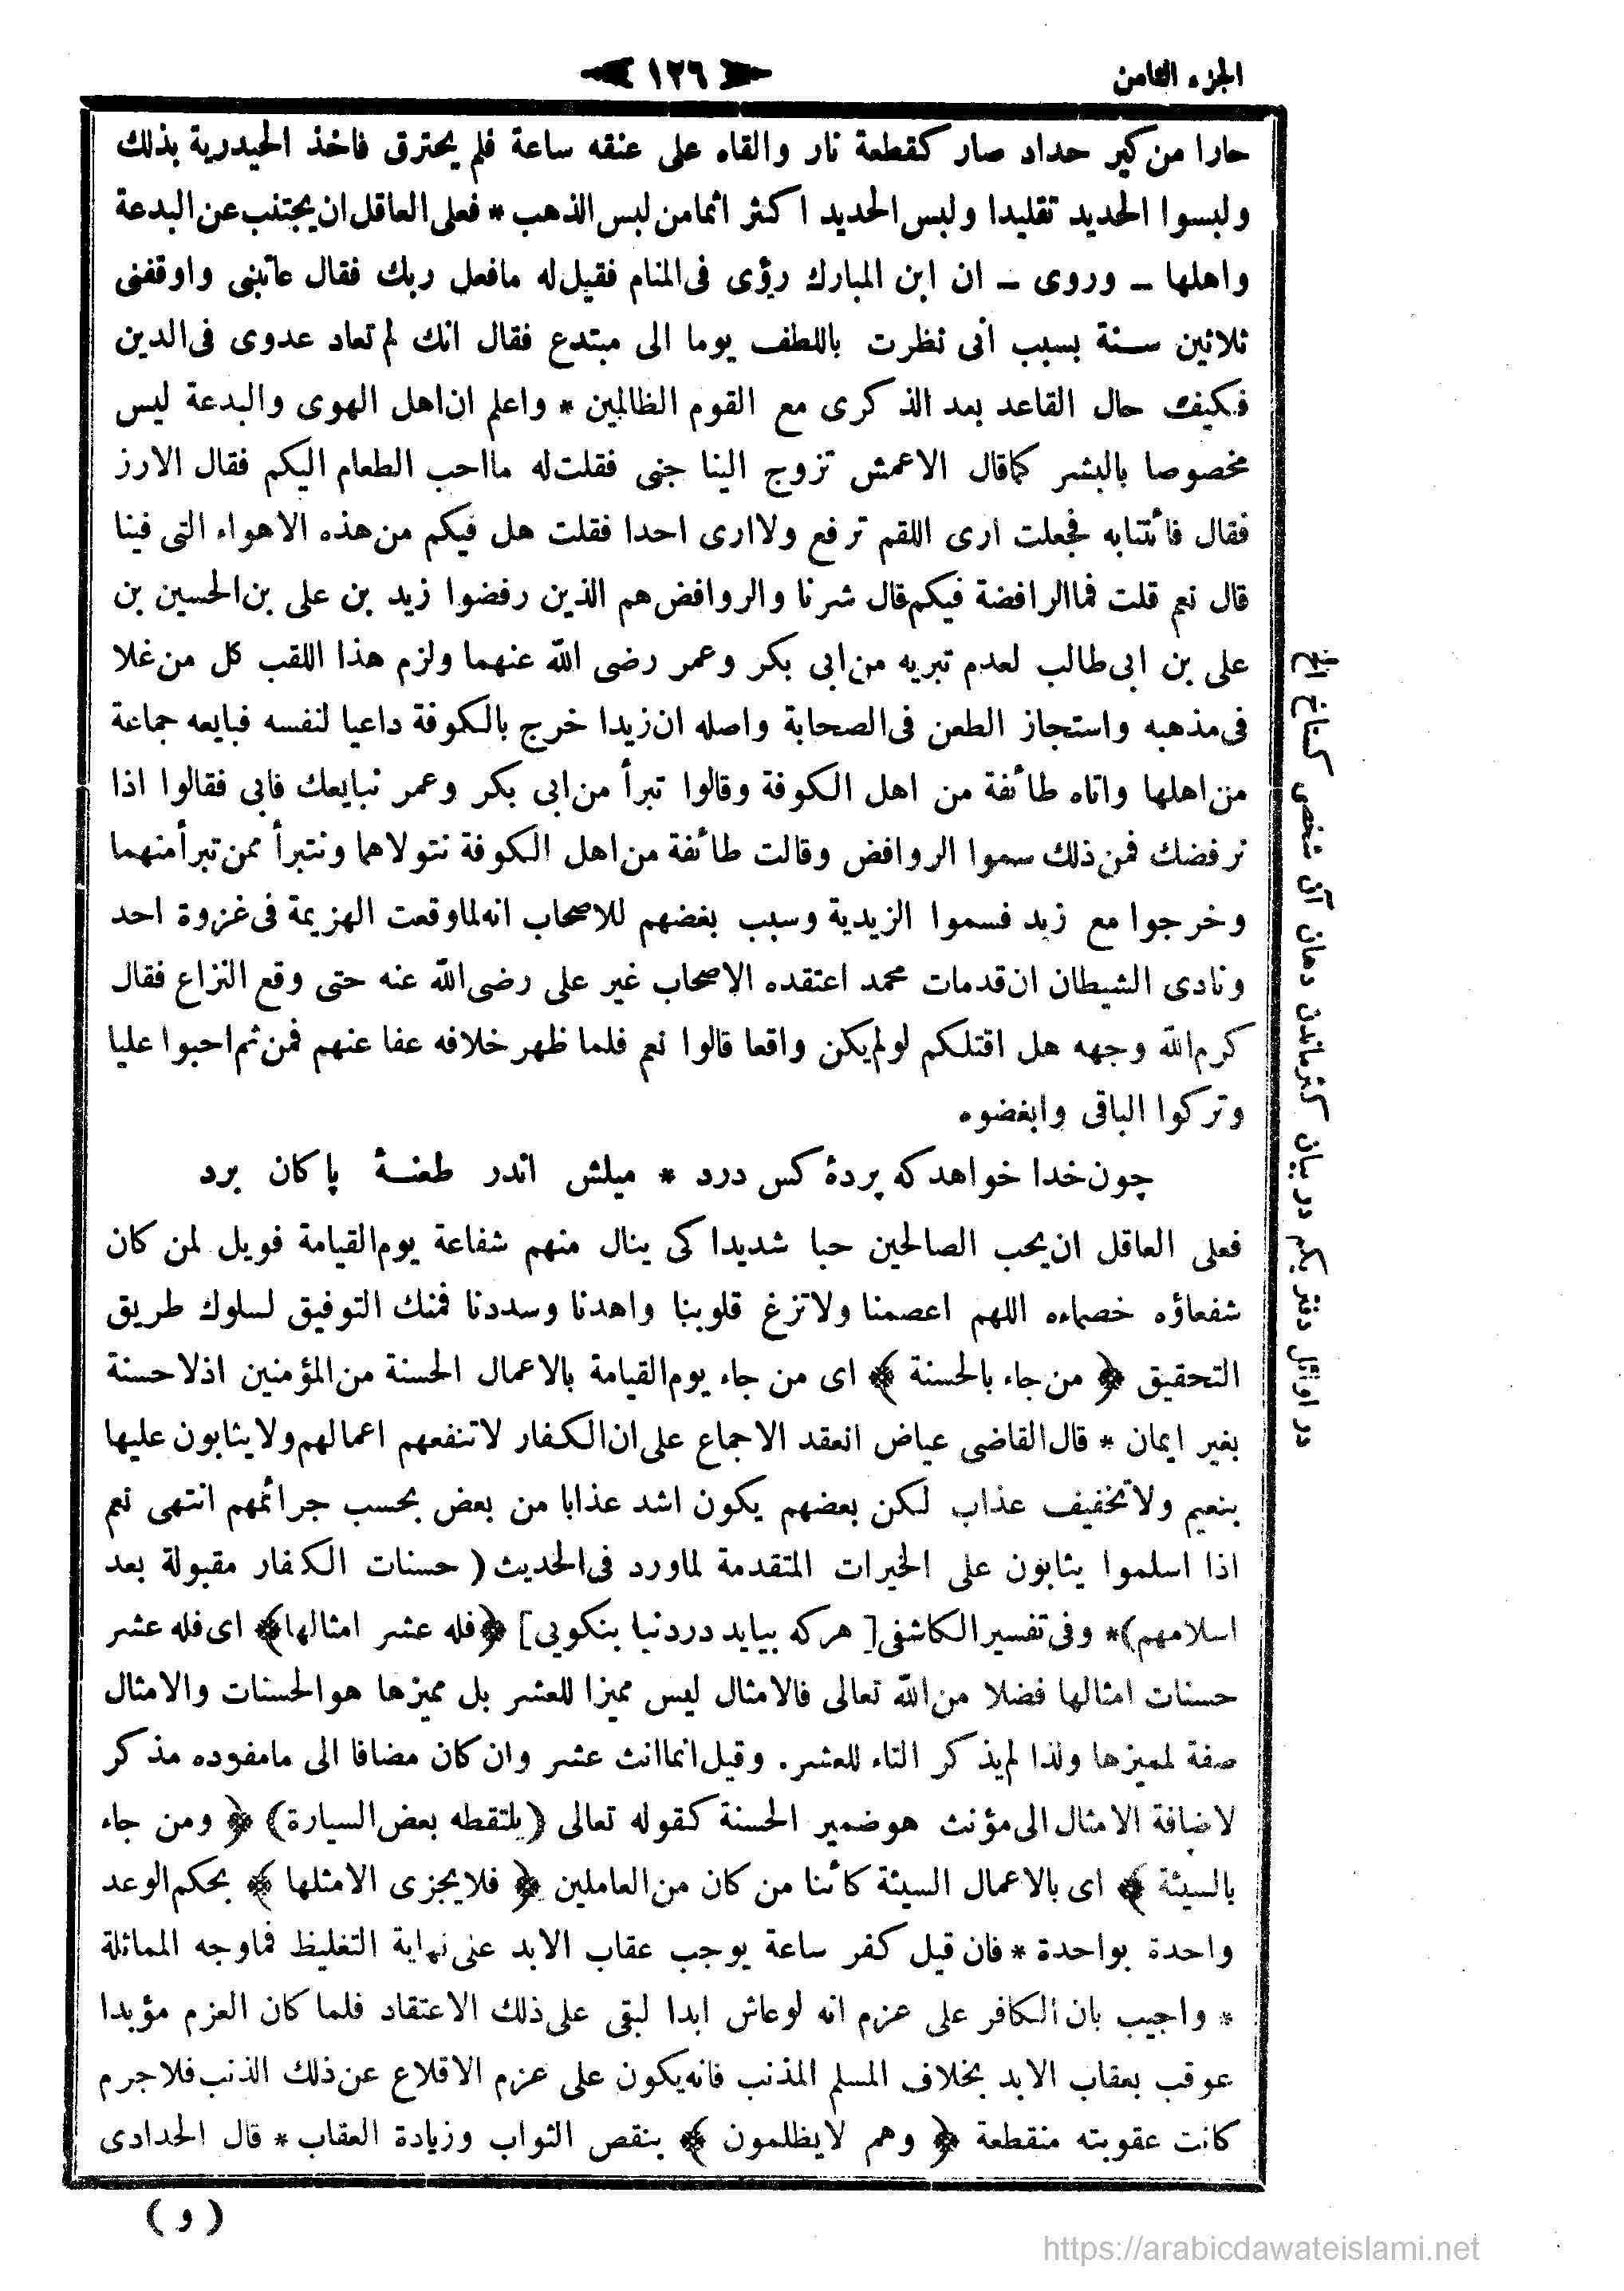 الجزء الثامن
١٢٦
حارا من كير حداد صار كقطعة نار والقاه على عنقه ساعة فلم يحترق فاخذ الحيدرية بذلك
ولبسوا الحديد تقليدا ولبس الحديد اكثر اثما من لبس الذهب * فعلى العاقل ان يجتنب عن البدعة
واهلها ـ وروى ـ ان ابن المبارك رؤى فى المنام فقيل له مافعل ربك فقال عاتبنى واوقفنى
ثلاثين سنة بسبب أنى نظرت باللطف يوما الى مبتدع فقال انك لم تعاد عدوى فى الدين
فكيف حال القاعد بعد الذكرى مع القوم الظالمين * واعلم ان اهل الهوى والبدعة ليس
مخصوصا بالبشر كما قال الاعمش تزوج الينا جنى فقلت له ما احب الطعام اليكم فقال الارز
فقال فأتتنابه فجعلت ارى اللقم ترفع ولا ارى احدا فقلت هل فيكم من هذه الاهواء التى فينا
قال نعم قلت فما الرافضة فيكم قال شرنا والروافض هم الذين رفضوا زيد بن على بن الحسين بن
على بن ابى طالب لعدم تبريه من ابى بكر وعمر رضى الله عنهما ولزم هذا اللقب كل من غلا
فى مذهبه واستجاز الطعن فى الصحابة واصله ان زيدا خرج بالكوفة داعيا لنفسه فبايعه جماعة
من اهلها واتاه طائفة من اهل الكوفة وقالوا تبرأ من ابى بكر وعمر نبايعك فابى فقالوا اذا
نرفضك فمن ذلك سموا الروافض وقالت طائفة من اهل الكوفة نتولاهما ونتبرأ ممن تبرأ منهما
وخرجوا مع زيد فسموا الزيدية وسبب بغضهم للاصحاب انه لما وقعت الهزيمة فى غزوة احد
ونادى الشيطان ان قدمات محمد اعتقده الاصحاب غير على رضى الله عنه حتى وقع النزاع فقال
كرم الله وجهه هل اقتلكم لو لم يكن واقعا قالوا نعم فلما ظهر خلافه عفا عنهم فمن ثم احبوا عليا
وتركوا الباقى وابغضوه
چون خدا خواهد كه پردۀ كس درد * ميلش اندر طعنۀ پاكان برد
فعلى العاقل ان يحب الصالحين حبا شديدا كى ينال منهم شفاعة يوم القيامة فويل لمن كان
شفعاؤه خصماءه اللهم اعصمنا ولا تزغ قلوبنا واهدنا وسددنا فمنك التوفيق لسلوك طريق
التحقيق ﴿ من جاء بالحسنة ﴾ اى من جاء يوم القيامة بالاعمال الحسنة من المؤمنين اذلا حسنة
بغير ايمان * قال القاضى عياض انعقد الاجماع على ان الكفار لا تنفعهم اعمالهم ولا يثابون عليها
بنعيم ولا تخفيف عذاب لكن بعضهم يكون اشد عذابا من بعض بحسب جرائمهم انتهى نعم
اذا اسلموا يثابون على الخيرات المتقدمة لما ورد فى الحديث ( حسنات الكفار مقبولة بعد
اسلامهم)* وفى تفسير الكاشفى [ هركه بيايد دردنيا بنكويى] ﴿فله عشر امثالها﴾ اى فله عشر
حسنات امثالها فضلا من الله تعالى فالامثال ليس مميزا للعشر بل مميزها هو الحسنات والامثال
صفة لمميزها ولذا لم يذكر التاء للعشر. وقيل انما انث عشر وان كان مضافا الى مامفوده مذكر
لاضافة الامثال الى مؤنث هو ضمير الحسنة كقوله تعالى (يلتقطه بعض السيارة) ﴿ ومن جاء
بالسيئة ﴾ اى بالاعمال السيئة كائنا من كان من العاملين ﴿ فلا يجزى الا مثلها ﴾ بحكم الوعد
واحدة بواحدة * فان قيل كفر ساعة يوجب عقاب الابد على نهاية التغليظ فما وجه المماثلة
* واجيب بان الكافر على عزم انه لو عاش ابدا لبقى على ذلك الاعتقاد فلما كان العزم مؤبدا
عوقب بعقاب الابد بخلاف المسلم المذنب فانه يكون على عزم الاقلاع عن ذلك الذنب فلا جرم
كانت عقوبته منقطعة ﴿ وهم لا يظلمون ﴾ بنقص الثواب وزيادة العقاب * قال الحدادى
( و )
در اوائل دفتر يكم در بيان كژماندن دهان آن شخص كستاخ الخ
https://arabicdawateislami.net